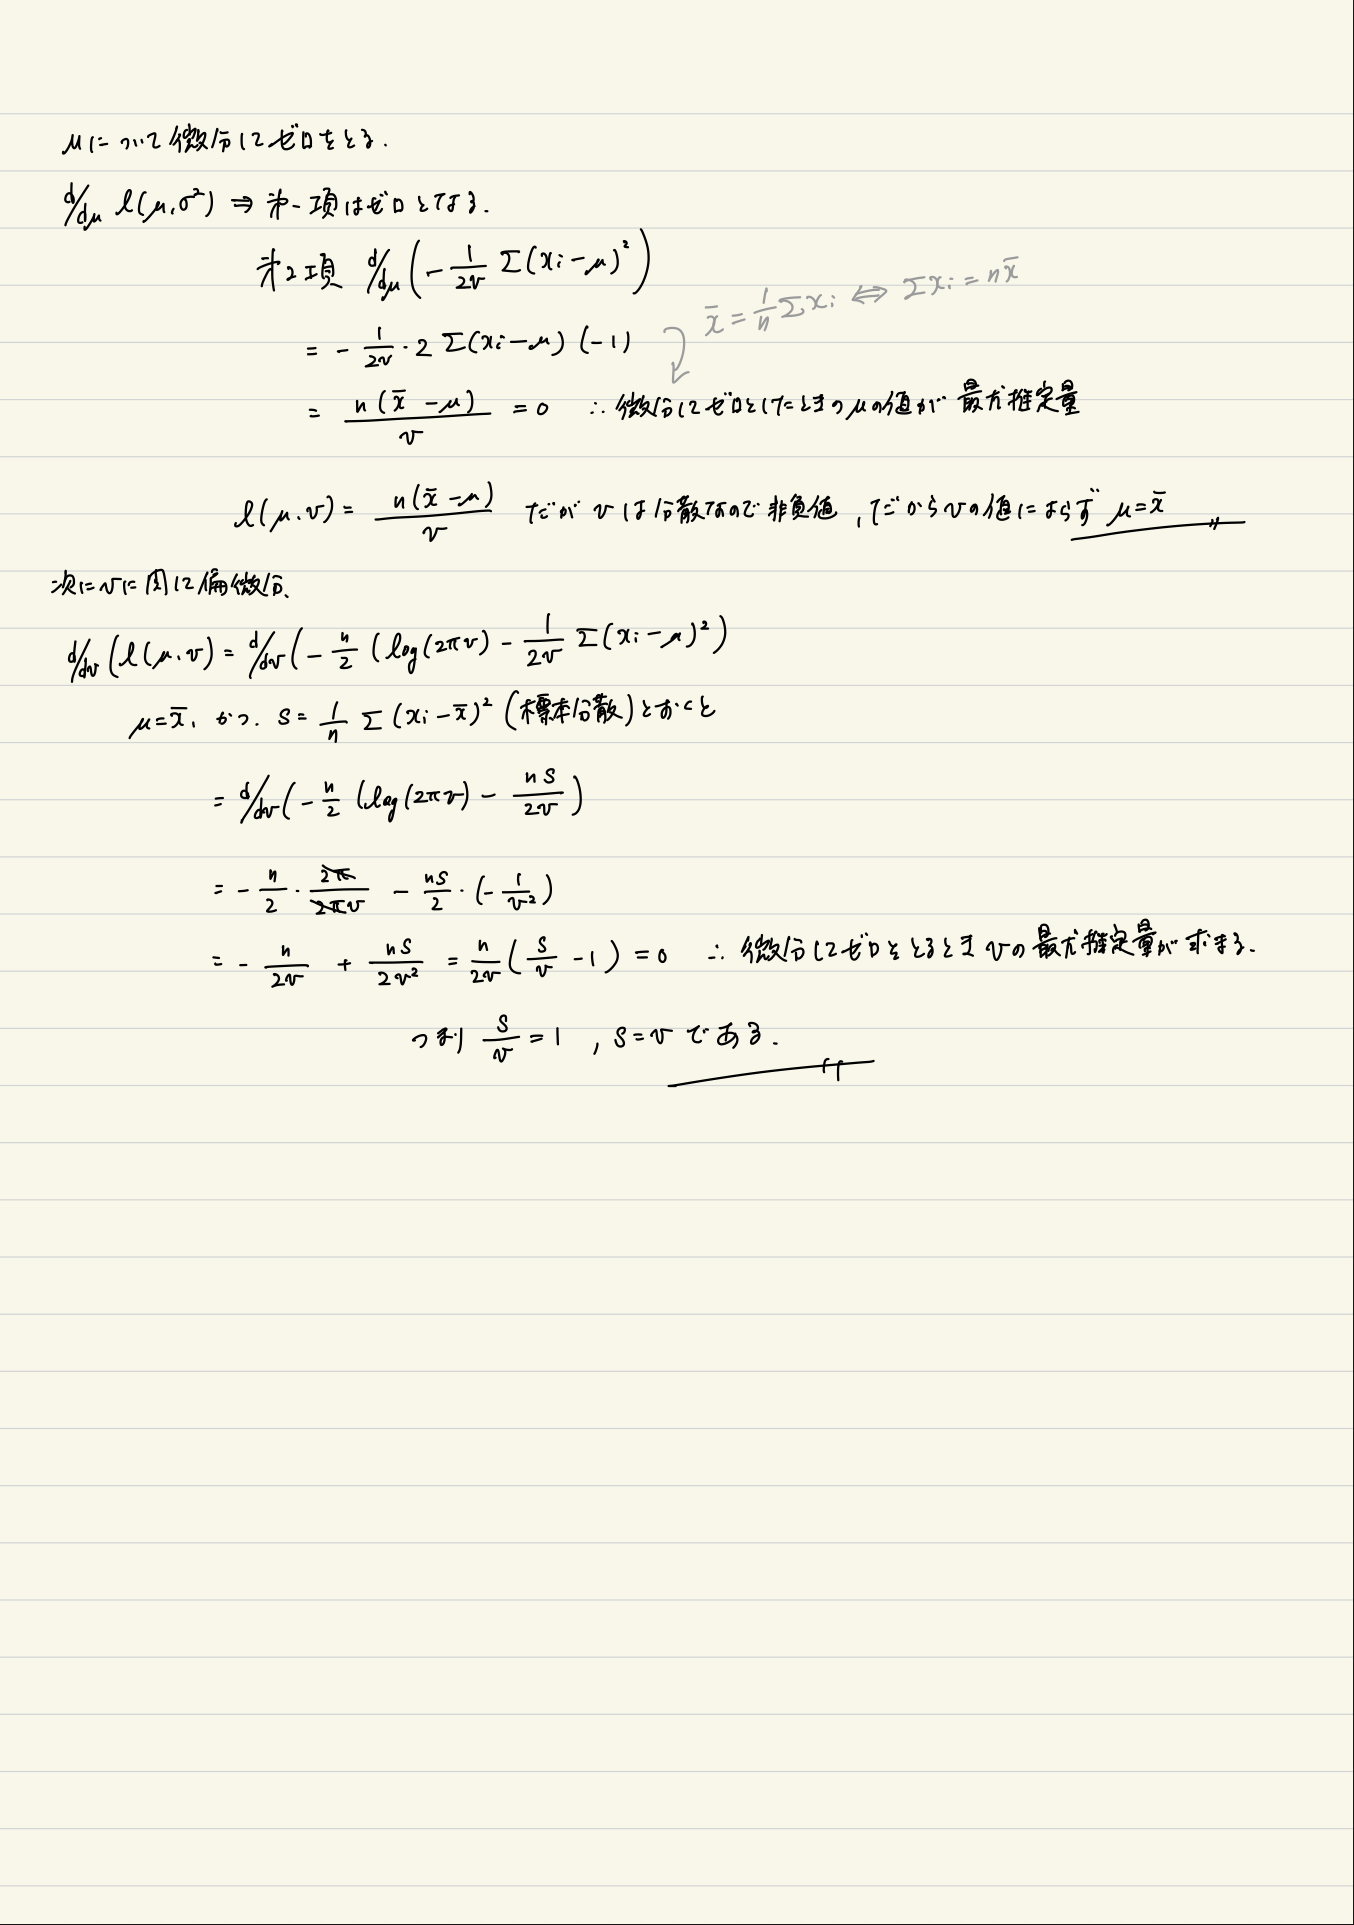 μについて微分してゼロをとる.
d/dμ l(μ,σ²) ⇒ 第一項はゼロとなる.
第2項 d/dμ(-1/2v Σ(xi-μ)²)
x̄ = 1/n Σxi ⇔ Σxi = nx̄
= - 1/2v · 2 Σ(xi-μ) (-1)
= n(x̄-μ)/v = 0 ∴ 微分してゼロとしたときのμの値が 最尤推定量
l(μ.v) = n(x̄-μ)/v だが vは分散なので非負値, だからvの値によらず μ=x̄
次にvに関して偏微分、
d/dv(l(μ.v) = d/dv(-n/2 (log(2πv) - 1/2v Σ(xi-μ)²)
μ=x̄, かつ. S= 1/n Σ(xi-x̄)² (標本分散)とおくと
= d/dv(-n/2 (log(2πv) - nS/2v)
= - n/2 · 2π/2πv - nS/2 · (-1/v²)
= - n/2v + nS/2v² = n/2v (S/v -1) = 0 ∴ 微分してゼロをとるとき vの最尤推定量が求まる.
つまり S/v = 1 , S=v である.